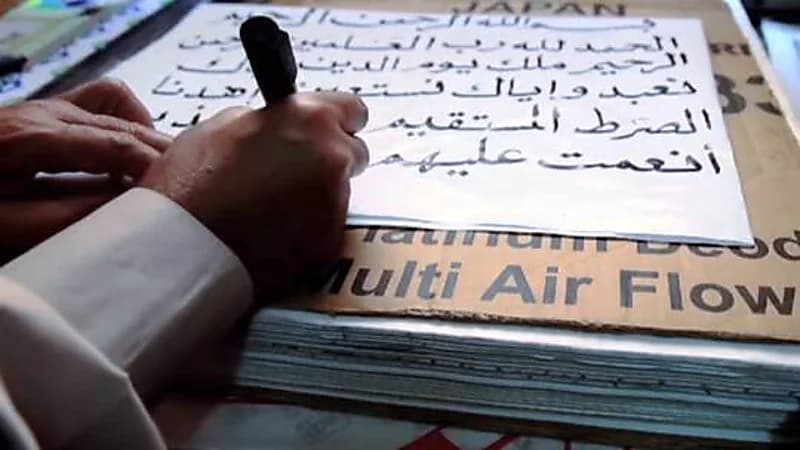 JAPAN
بسم الله الرحمن الرحيم
الحمد لله رب العلمين
الرحيم ملك يوم الدين
نعبد وإياك نستعين اهدنا
الصرط المستقيم
أنعمت عليهم
Platinum Deod
Multi Air Flow